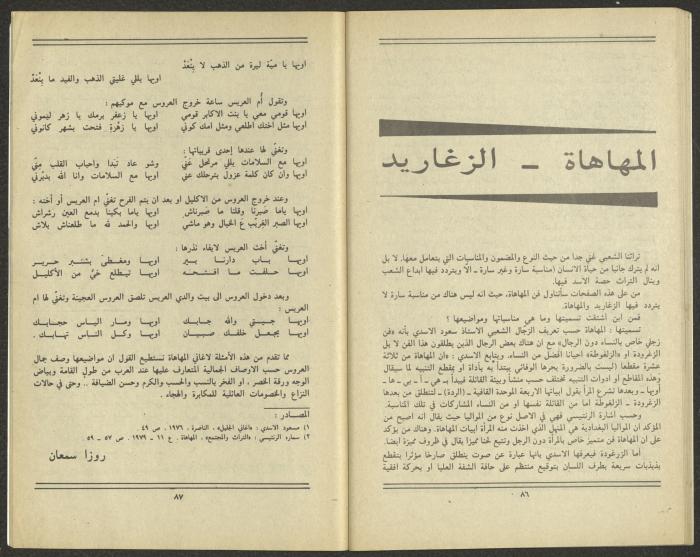 المهاهاة ـ الزغاريد
تراثنا الشعبي غني جدا من حيث النوع والمضمون والمناسبات التي يتعامل معها. لا بل
انه لم يترك جانبا من حياة الانسان (مناسبة سارة وغير سارة ـ الا ويتردد فيها ابداع الشعب
وينال التراث حصة الاسد فيها.
من على هذه الصفحات سأتناول فن المهاهاة، حيث انه ليس هناك من مناسبة سارة لا
يتردد فيها الزغاريد والمهاهاة.
فمن اين اشتقت تسميتها وما هي مناسباتها ومواضيعها ؟
تسميتها : المهاهاة حسب تعريف الزجّال الشعبي الاستاذ سعود الاسدي بأنه «فن
زجلي خاص بالنساء دون الرجال» مع ان هناك بعض الرجال الذين يطلقون هذا الفن لا بل
الزغرودة او «الزلغوطة» احيانا افضل من النساء. ويتابع الاسدي : «ان المهاهاة من ثلاثة
عشرة مقطعا (ليست بالضرورة بحرها الوفائي يبتدأ به بأداة او بمقطع التنبيه لما سيقال
وهذه المقاطع او ادوات التنبيه تختلف حسب منشأ وبيئة القائلة فيبدأ بـ هي ـ آ ـ ـ ها ـ
أويها ـ وبعدها تشرع المرأة بقول ابياتها الاربعة الموحدة القافية ـ (الردة) ـ لتنطلق من بعدها
الزغرودة ـ الزلغوطة أما من القائلة نفسها او من النساء المشاركات في تلك المناسبة.
وحسب اشارة الرنتيسي فهي في الاصل نوع من المواليا حيث يقال انه اصبح من
المؤكد ان المواليا البغدادية هي المنهل الذي اخذت منه المرأة ابيات المهاهاة. وهناك من يؤكد
على ان المهاهاة فن متميز خاص بالمرأة دون الرجل وتتبع لحنا مميزا يقال في ظروف مميزة ايضا.
أما الزرغودة فيعرفها الاسدي بانها عبارة عن صوت ينطلق صارخا مؤثرا بتقطع
بذبذبات سريعة بطرف اللسان بتوقيع منتظم على حافة الشفة العليا او بحركة افقية
٨٦
اويها يا ميّة ليرة من الذهب لا يِنْعَدّ
اويها ياللي غليتي الذهب والفيد ما يِنْعَدّ
وتقول أم العريس ساعة خروج العروس مع موكبهم :
اويها قومي معي يا بنت الاكابر قومي اويها يا زعفر برمك يا زهر ليموني
اويها مثل اختك اطلعي ومثل امك كوني اويها يا زَهْرة فتحت بشهر كانوني
وتغنّي لها عندها إحدى قريباتها :
اويها مع السلامات ياللي مرتحل عَنّي وشو عاد تَبَدا واحباب القلب مِنّي
اويها وان كان كلمة عزول بترحلك عني اويها مع السلامات وانا الله بدبّرني
وعند خروج العروس من الاكليل او بعد ان يتم الفرح تغني ام العريس أو أخته :
اويها ياما صَبَرنا وقلنا ما صَبَرناش اويها ياما بكينا بدمع العين رشراش
اويها الصبر القريّب عَ الخيال وهو ماشي اويها والحمد لله ما طلعناش بلاش
وتغني أخت العريس لايفاء نذرها :
اويها باب دارنا بير اويها ومغطى بشنبر حرير
اويها حلفت ما افتحه اويها تيطلع خيّ من الأكليل
وبعد دخول العروس الى بيت والدي العريس تلصق العروس العجينة وتغنّي لها ام
العريس :
اويها جبتي والله جابك اويها ومار الياس حجابك
اويها يجعل خلفك صبيان اويها وكل الناس تهابك .
مما تقدم من هذه الأمثلة لاغاني المهاهاة نستطيع القول ان مواضيعها وصف جمال
العروس حسب الاوصاف الجمالية المتعارف عليها عند العرب من طول القامة وبياض
الوجه ورقة الخصر ، او الفخر بالنسب والحسب والكرم وحسن الضيافة .. وحتى في حالات
النزاع والخصومات العائلية للمكابرة والهجاء .
المصادر :
١) مسعود الاسدي : «اغاني الجليل» ، الناصرة ، ١٩٧٦ ، ص ٤٩
٢) ساره الرنتيسي : «التراث والمجتمع» ، المهاهاة . ع ١١ ـ ١٩٧٩ ، ص ٥٧ ـ ٥٩
روزا سمعان
٨٧